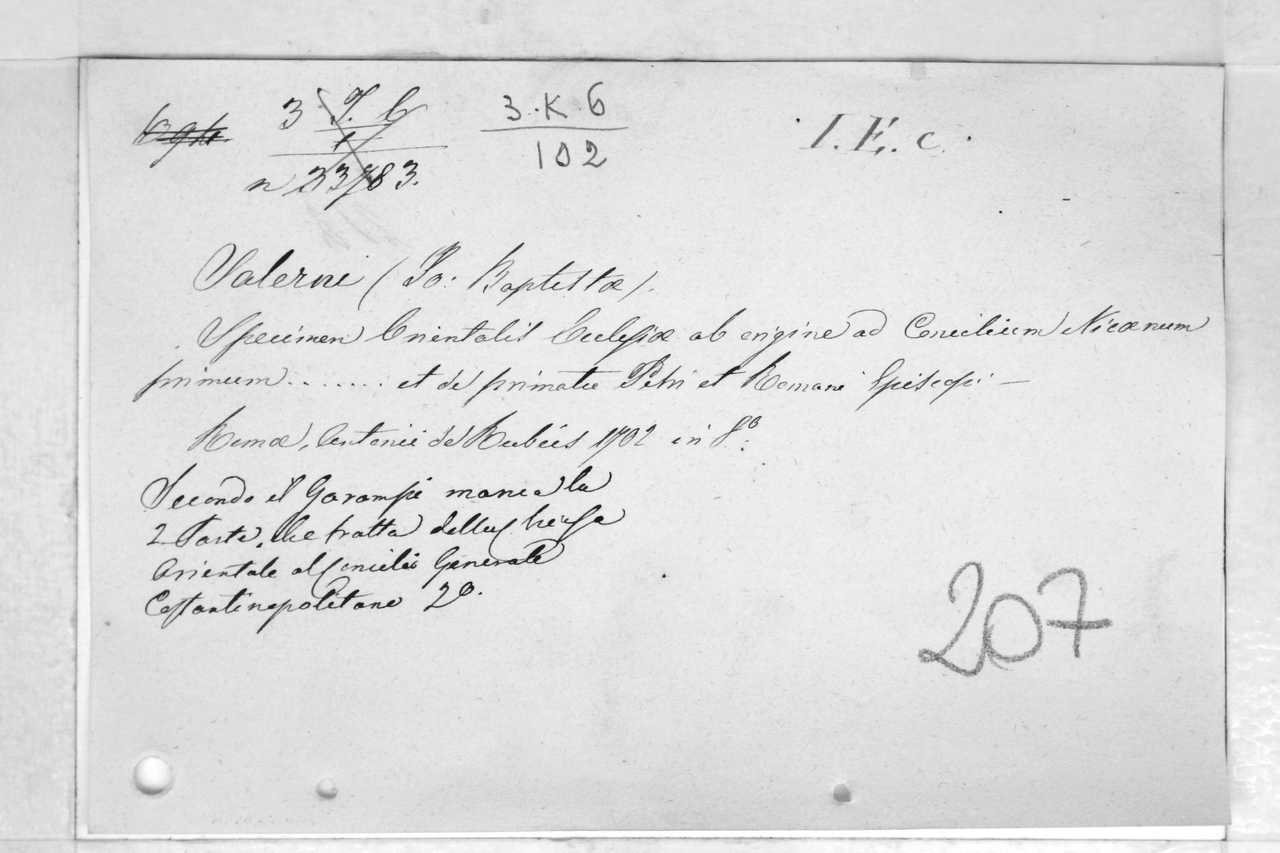 3 K 6
102
I. E. c.
n 23783.
Salerni (Jo: Baptistæ).
Specimen Orientalis Ecclesiæ ab origine ad Concilium Nicænum
primum ....... et de primatu Petri et Romani Episcopi —
Romæ, Antonii de Rubeis 1702 in 8º:
Secondo il Garampi manca la
2 Parte, che tratta della Chiesa
Orientale al Concilio Generale
Costantinopolitano 2º.
207